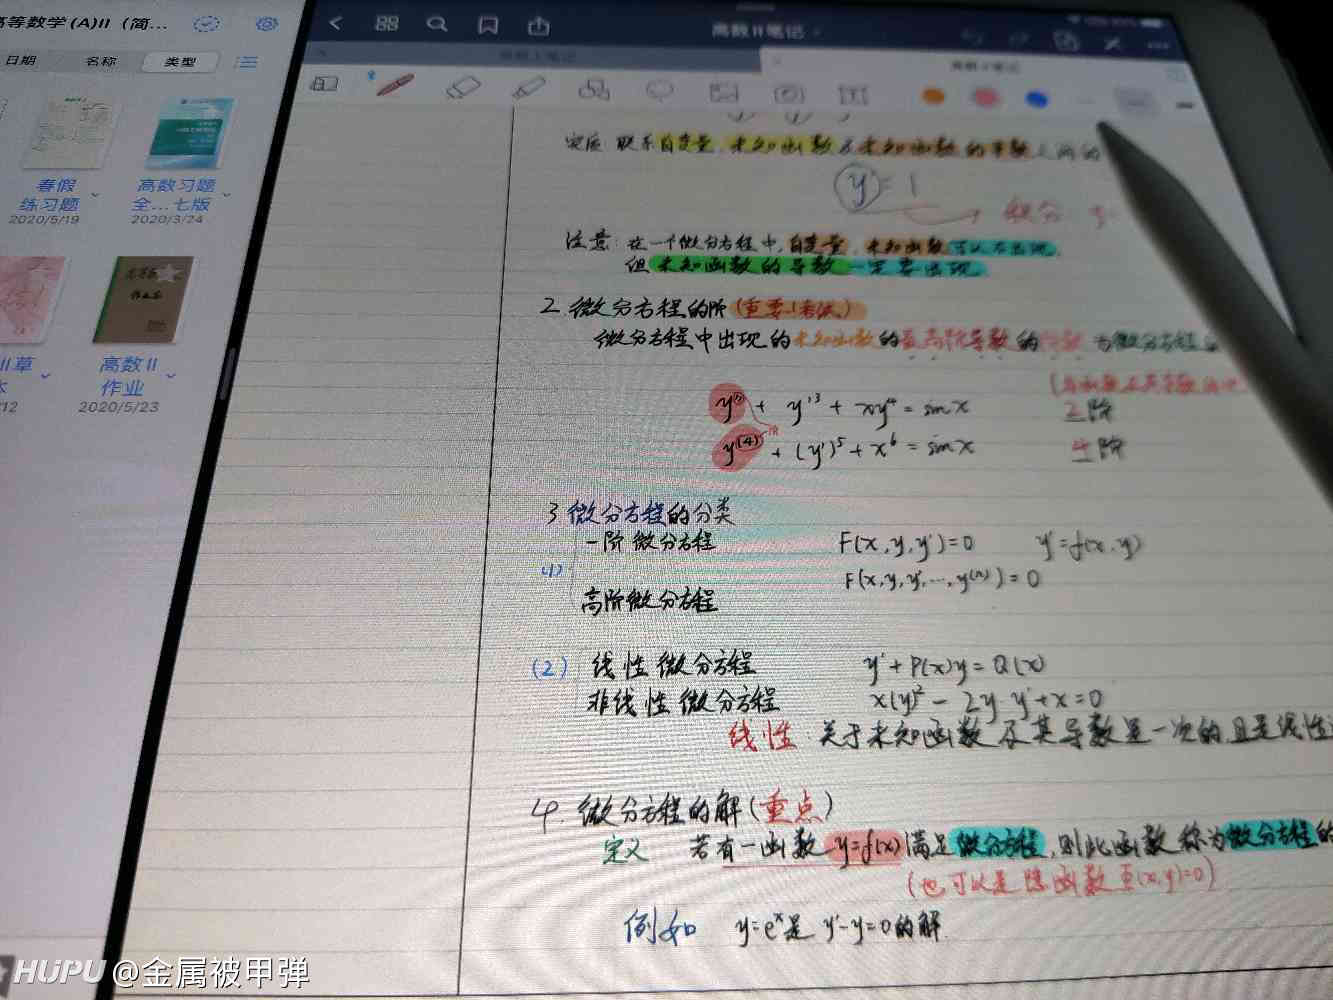 高等数学(A)II (简...
日期 名称 类型
春假
练习题
2020/5/19
高数习题
全...七版
2020/3/24
II草
本
/12
高数II
作业
2020/5/23
高数II笔记
定义: 联系自变量,未知函数及未知函数的导数之间的
y'=1
积分
注意: 在一个微分方程中,自变量,未知函数可以不出现,
但未知函数的导数一定要出现
2 微分方程的阶(重要!考试)
微分方程中出现的未知函数的最高阶导数的阶数 为微分方程
y'' + y'³ + xy⁴ = sin x 二阶
y⁽⁴⁾ + (y')⁵ + x⁶ = sin x 4阶
3 微分方程的分类
(1)
一阶微分方程 F(x,y,y')=0 y'=f(x,y)
高阶微分方程 F(x,y,y',...,y⁽ⁿ⁾)=0
(2) 线性微分方程 y'+P(x)y=Q(x)
非线性微分方程 x(y')²-2y y'+x=0
线性: 关于未知函数及其导数是一次的,且是线性
4. 微分方程的解(重点)
定义 若有一函数 y=f(x)满足微分方程,则此函数称为微分方程的
(也可以是隐函数Φ(x,y)=0)
例如 y=eˣ是 y'-y=0的解
HUPU @金属被甲弹